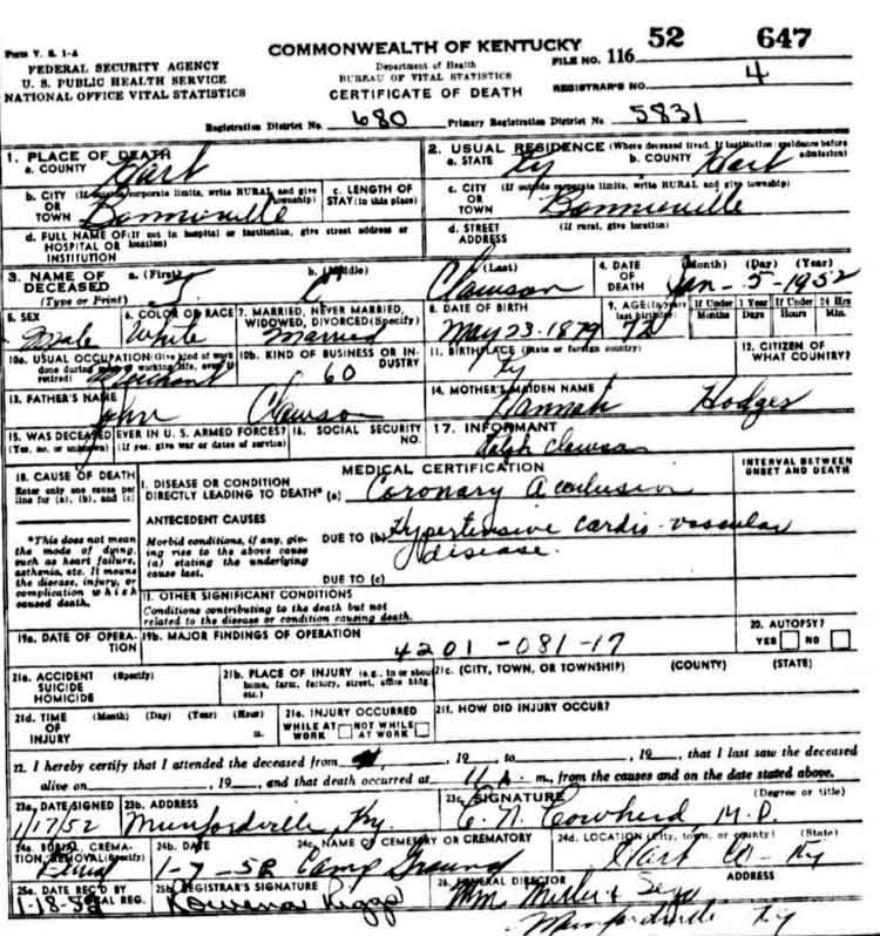 Form V. S. 1-A
FEDERAL SECURITY AGENCY
U. S. PUBLIC HEALTH SERVICE
NATIONAL OFFICE VITAL STATISTICS
COMMONWEALTH OF KENTUCKY
Department of Health
BUREAU OF VITAL STATISTICS
CERTIFICATE OF DEATH
FILE NO. 116 52 647
REGISTRAR'S NO. 4
Registration District No. 680 Primary Registration District No. 5831
1. PLACE OF DEATH
a. COUNTY Hart
2. USUAL RESIDENCE (Where deceased lived. If institution: residence before admission)
a. STATE Ky b. COUNTY Hart
b. CITY (If outside corporate limits, write RURAL and give township)
OR
TOWN Bonnieville
c. LENGTH OF
STAY (in this place)
c. CITY (If outside corporate limits, write RURAL and give township)
OR
TOWN Bonnieville
d. FULL NAME OF (If not in hospital or institution, give street address or location)
HOSPITAL OR
INSTITUTION
d. STREET (If rural, give location)
ADDRESS
3. NAME OF DECEASED
(Type or Print)
a. (First) b. (Middle) c. (Last)
Clawson
4. DATE OF DEATH (Month) (Day) (Year)
Jan-5-1952
5. SEX
Male
6. COLOR OR RACE
White
7. MARRIED, NEVER MARRIED,
WIDOWED, DIVORCED (Specify)
Married
8. DATE OF BIRTH
May 23-1879
9. AGE (In years last birthday) If Under 1 Year If Under 24 Hrs
Months Days Hours Min.
72
10a. USUAL OCCUPATION (Give kind of work done during most of working life, even if retired)
Merchant
10b. KIND OF BUSINESS OR INDUSTRY
60
11. BIRTHPLACE (State or foreign country)
Ky
12. CITIZEN OF
WHAT COUNTRY?
13. FATHER'S NAME
John Clawson
14. MOTHER'S MAIDEN NAME
Hannah Hodges
15. WAS DECEASED EVER IN U. S. ARMED FORCES?
(Yes, no, or unknown) (If yes, give war or dates of service)
16. SOCIAL SECURITY
NO.
17. INFORMANT
Ralph Clawson
18. CAUSE OF DEATH
Enter only one cause per
line for (a), (b), and (c)
*This does not mean
the mode of dying,
such as heart failure,
asthenia, etc. It means
the disease, injury, or
complication which
caused death.
MEDICAL CERTIFICATION
INTERVAL BETWEEN
ONSET AND DEATH
I. DISEASE OR CONDITION
DIRECTLY LEADING TO DEATH* (a) Coronary
ANTECEDENT CAUSES
Morbid conditions, if any, giv-
ing rise to the above cause
(a) stating the underlying
cause last.
DUE TO (b) Hypertensive cardio-vascular
disease.
DUE TO (c)
II. OTHER SIGNIFICANT CONDITIONS
Conditions contributing to the death but not
related to the disease or condition causing death.
19a. DATE OF OPERA-
TION
19b. MAJOR FINDINGS OF OPERATION
4201-081-17
20. AUTOPSY?
YES NO
21a. ACCIDENT (Specify)
SUICIDE
HOMICIDE
21b. PLACE OF INJURY (e.g., in or about
home, farm, factory, street, office bldg.
etc.)
21c. (CITY, TOWN, OR TOWNSHIP) (COUNTY) (STATE)
21d. TIME (Month) (Day) (Year) (Hour)
OF
INJURY m.
21e. INJURY OCCURRED
WHILE AT WORK NOT WHILE AT WORK
21f. HOW DID INJURY OCCUR?
22. I hereby certify that I attended the deceased from , 19 , to , 19 , that I last saw the deceased
alive on , 19 , and that death occurred at 11 A. m., from the causes and on the date stated above.
23a. DATE SIGNED
1/17/52
23b. ADDRESS
Munfordville, Ky.
23c. SIGNATURE (Degree or title)
Cowherd M.D.
24a. BURIAL, CREMA-
TION, REMOVAL (Specify)
Burial
24b. DATE
1-7-52
24c. NAME OF CEMETERY OR CREMATORY
Camp Ground
24d. LOCATION (City, town, or county) (State)
Hart Co-Ky
25a. DATE REC'D BY
LOCAL REG.
1-18-52
25b. REGISTRAR'S SIGNATURE
Rowena Riggs
26. FUNERAL DIRECTOR ADDRESS
Munfordville Ky